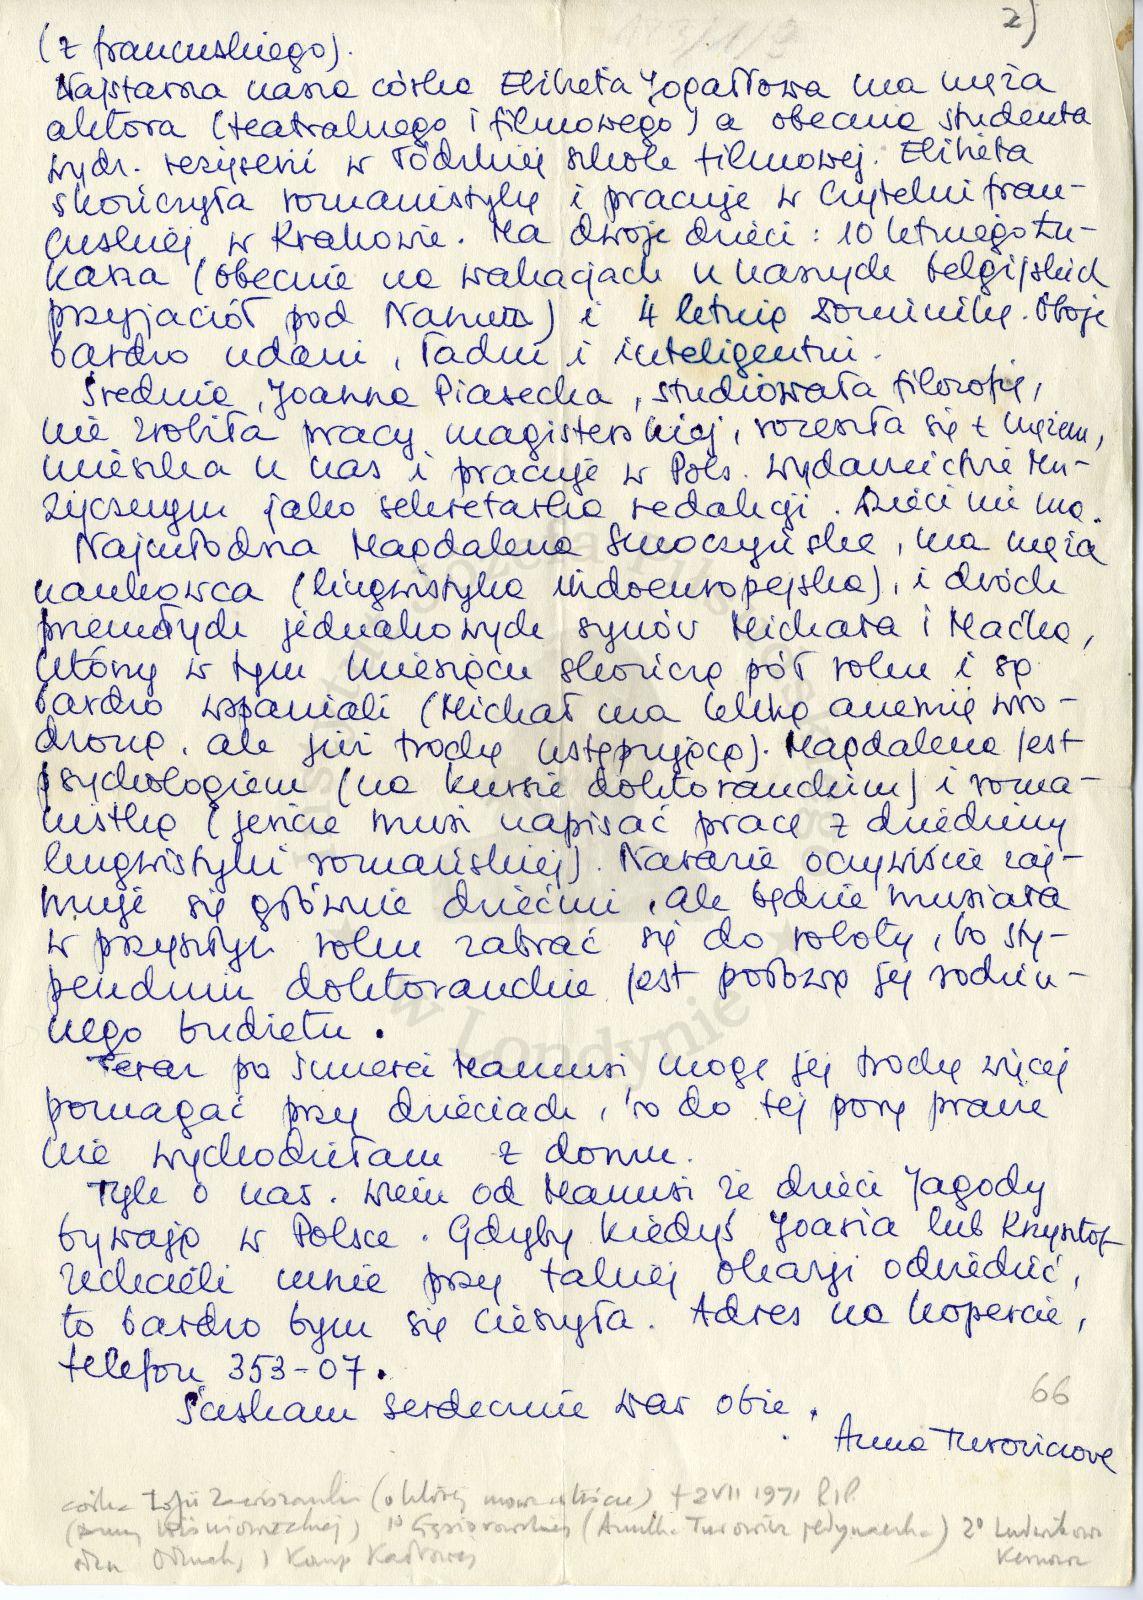 2)
(z francuskiego).
Najstarsza nasza córka Elżbieta Jogałłowa ma męża
aktora (teatralnego i filmowego) a obecnie studenta
wydz. reżyserii w łódzkiej szkole filmowej. Elżbieta
skończyła romanistykę i pracuje w Czytelni fran-
cuskiej w Krakowie. Ma dwoje dzieci: 10 letniego Łu-
kasza (obecnie na wakacjach u naszych belgijskich
przyjaciół pod Namur) i 4 letnię Dominikę. Oboje
bardzo udani, ładni i inteligentni.
Średnia, Joanna Piasecka, studiowała filozofię,
nie zrobiła pracy magisterskiej, rozeszła się z mężem,
mieszka u nas i pracuje w Pols. Wydawnictwie Mu-
zycznym jako sekretarka redakcji. Dzieci nie ma.
Najmłodsza Magdalena Smoczyńska, ma męża
naukowca (lingwistyka indoeuropejska), i dwóch
przemiłych jednakowych synów Michała i Maćka,
którzy w tym miesiącu skończą pół roku i są
bardzo wspaniali (Michał ma lekką anemię wro-
dzoną, ale już trochę ustępującą). Magdalena jest
psychologiem (na kursie doktoranckim) i roma-
nistką (jeszcze musi napisać pracę z dziedziny
lingwistyki romańskiej). Narazie oczywiście zaj-
muje się głównie dziećmi, ale będzie musiała
w przyszłym roku zabrać się do roboty, bo sty-
pendium doktoranckie jest podstawą jej rodzin-
nego budżetu.
Teraz po śmierci Mamusi, mogę jej trochę więcej
pomagać przy dzieciach, bo do tej pory prawie
nie wychodziłam z domu.
Tyle o nas. Wiem od Mamusi że dzieci Jagody
bywają w Polsce. Gdyby kiedyś Joasia lub Krzysztof
zechcieli mnie przy takiej okazji odwiedzić,
to bardzo bym się cieszyła. Adres na kopercie,
telefon 353-07.
Ściskam serdecznie Was obie.
66
Anna Turowiczowa
córka Zofii (o której mowa w liście) + 2 VII 1971 R.I.P.
1º Gąsiorowskiej (Anulka Turowicz jedynaczka) 2º Ludwikowa
Kernowa
w Londynie